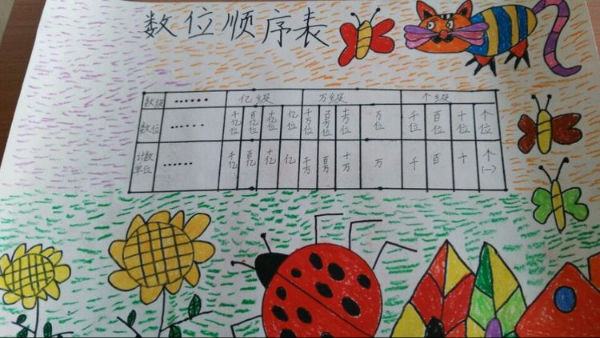 数位顺序表
数级 …… 亿级 万级 个级
数位 …… 千亿位 百亿位 十亿位 亿位 千万位 百万位 十万位 万位 千位 百位 十位 个位
计数单位 …… 千亿 百亿 十亿 亿 千万 百万 十万 万 千 百 十 个(一)